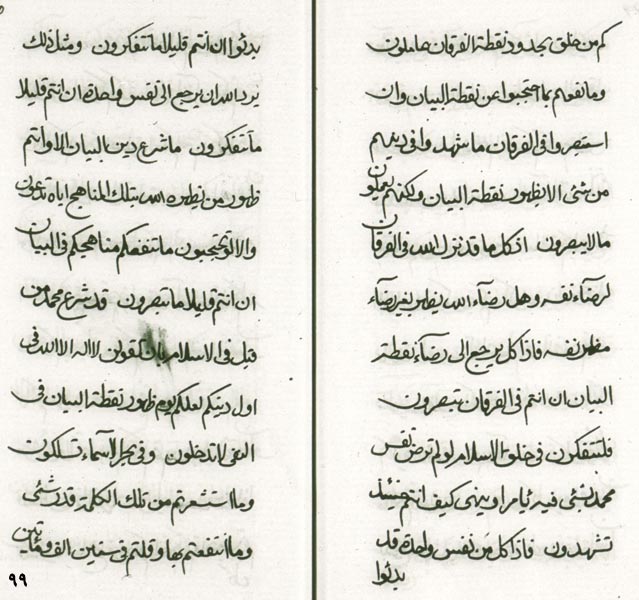 كم من خلق بحدود نقطة الفرقان عاملون
وما نفعهم بما احتجبوا عن نقطة البيان وان
استبصروا في الفرقان ما شهدوا في دينهم
من شئ الا لظهور نقطة البيان ولكنهم يعملون
ما لا يبصرون اذ كل ما قد نزل الله في الفرقان
لرضاء نفسه وهل رضاء الله يظهر بغير رضاء
مظهر نفسه فاذا كل يرجع الى رضاء نقطة
البيان ان انتم في الفرقان تبصرون
فلتتفكرون في خلق الاسلام لو لم ترض نفس
محمد بشئ فيه ويأمر او ينهى كيف انتم حينئذ
تشهدون فاذا كل من نفس واحدة قد
بدئوا
بدئوا ان انتم قليلا ما تتفكرون ومثل ذلك
يرد الله ان يرجع الى نفس واحدة ان انتم قليلا
ما تتفكرون ما شرع دين البيان الا وانتم
ظهور من يظهره الله بتلك المناهج اياه تدعون
والا لو تحتجبون ما تنفعكم مناهجكم في البيان
ان انتم قليلا ما تبصرون قد شرع محمد من
قبل في الاسلام بان تقولن لا اله الا الله في
اول دينكم لعلكم يوم ظهور نقطة البيان في
النفي لا تدخلون وفي بحر الاسماء تسلكون
وما استشعرتم من تلك الكلمة قدر شئ
وما انتفعتم بها وقلتم في سنين الف ومأتين
٩٩